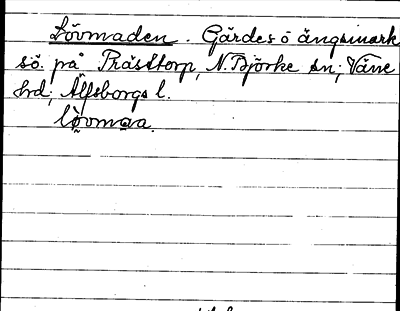 Lövmaden. Gärdes o ängsmark
sö. på Prästtorp, N. Björke sn, Väne
hrd, Älfsborgs l.
lövmaa.